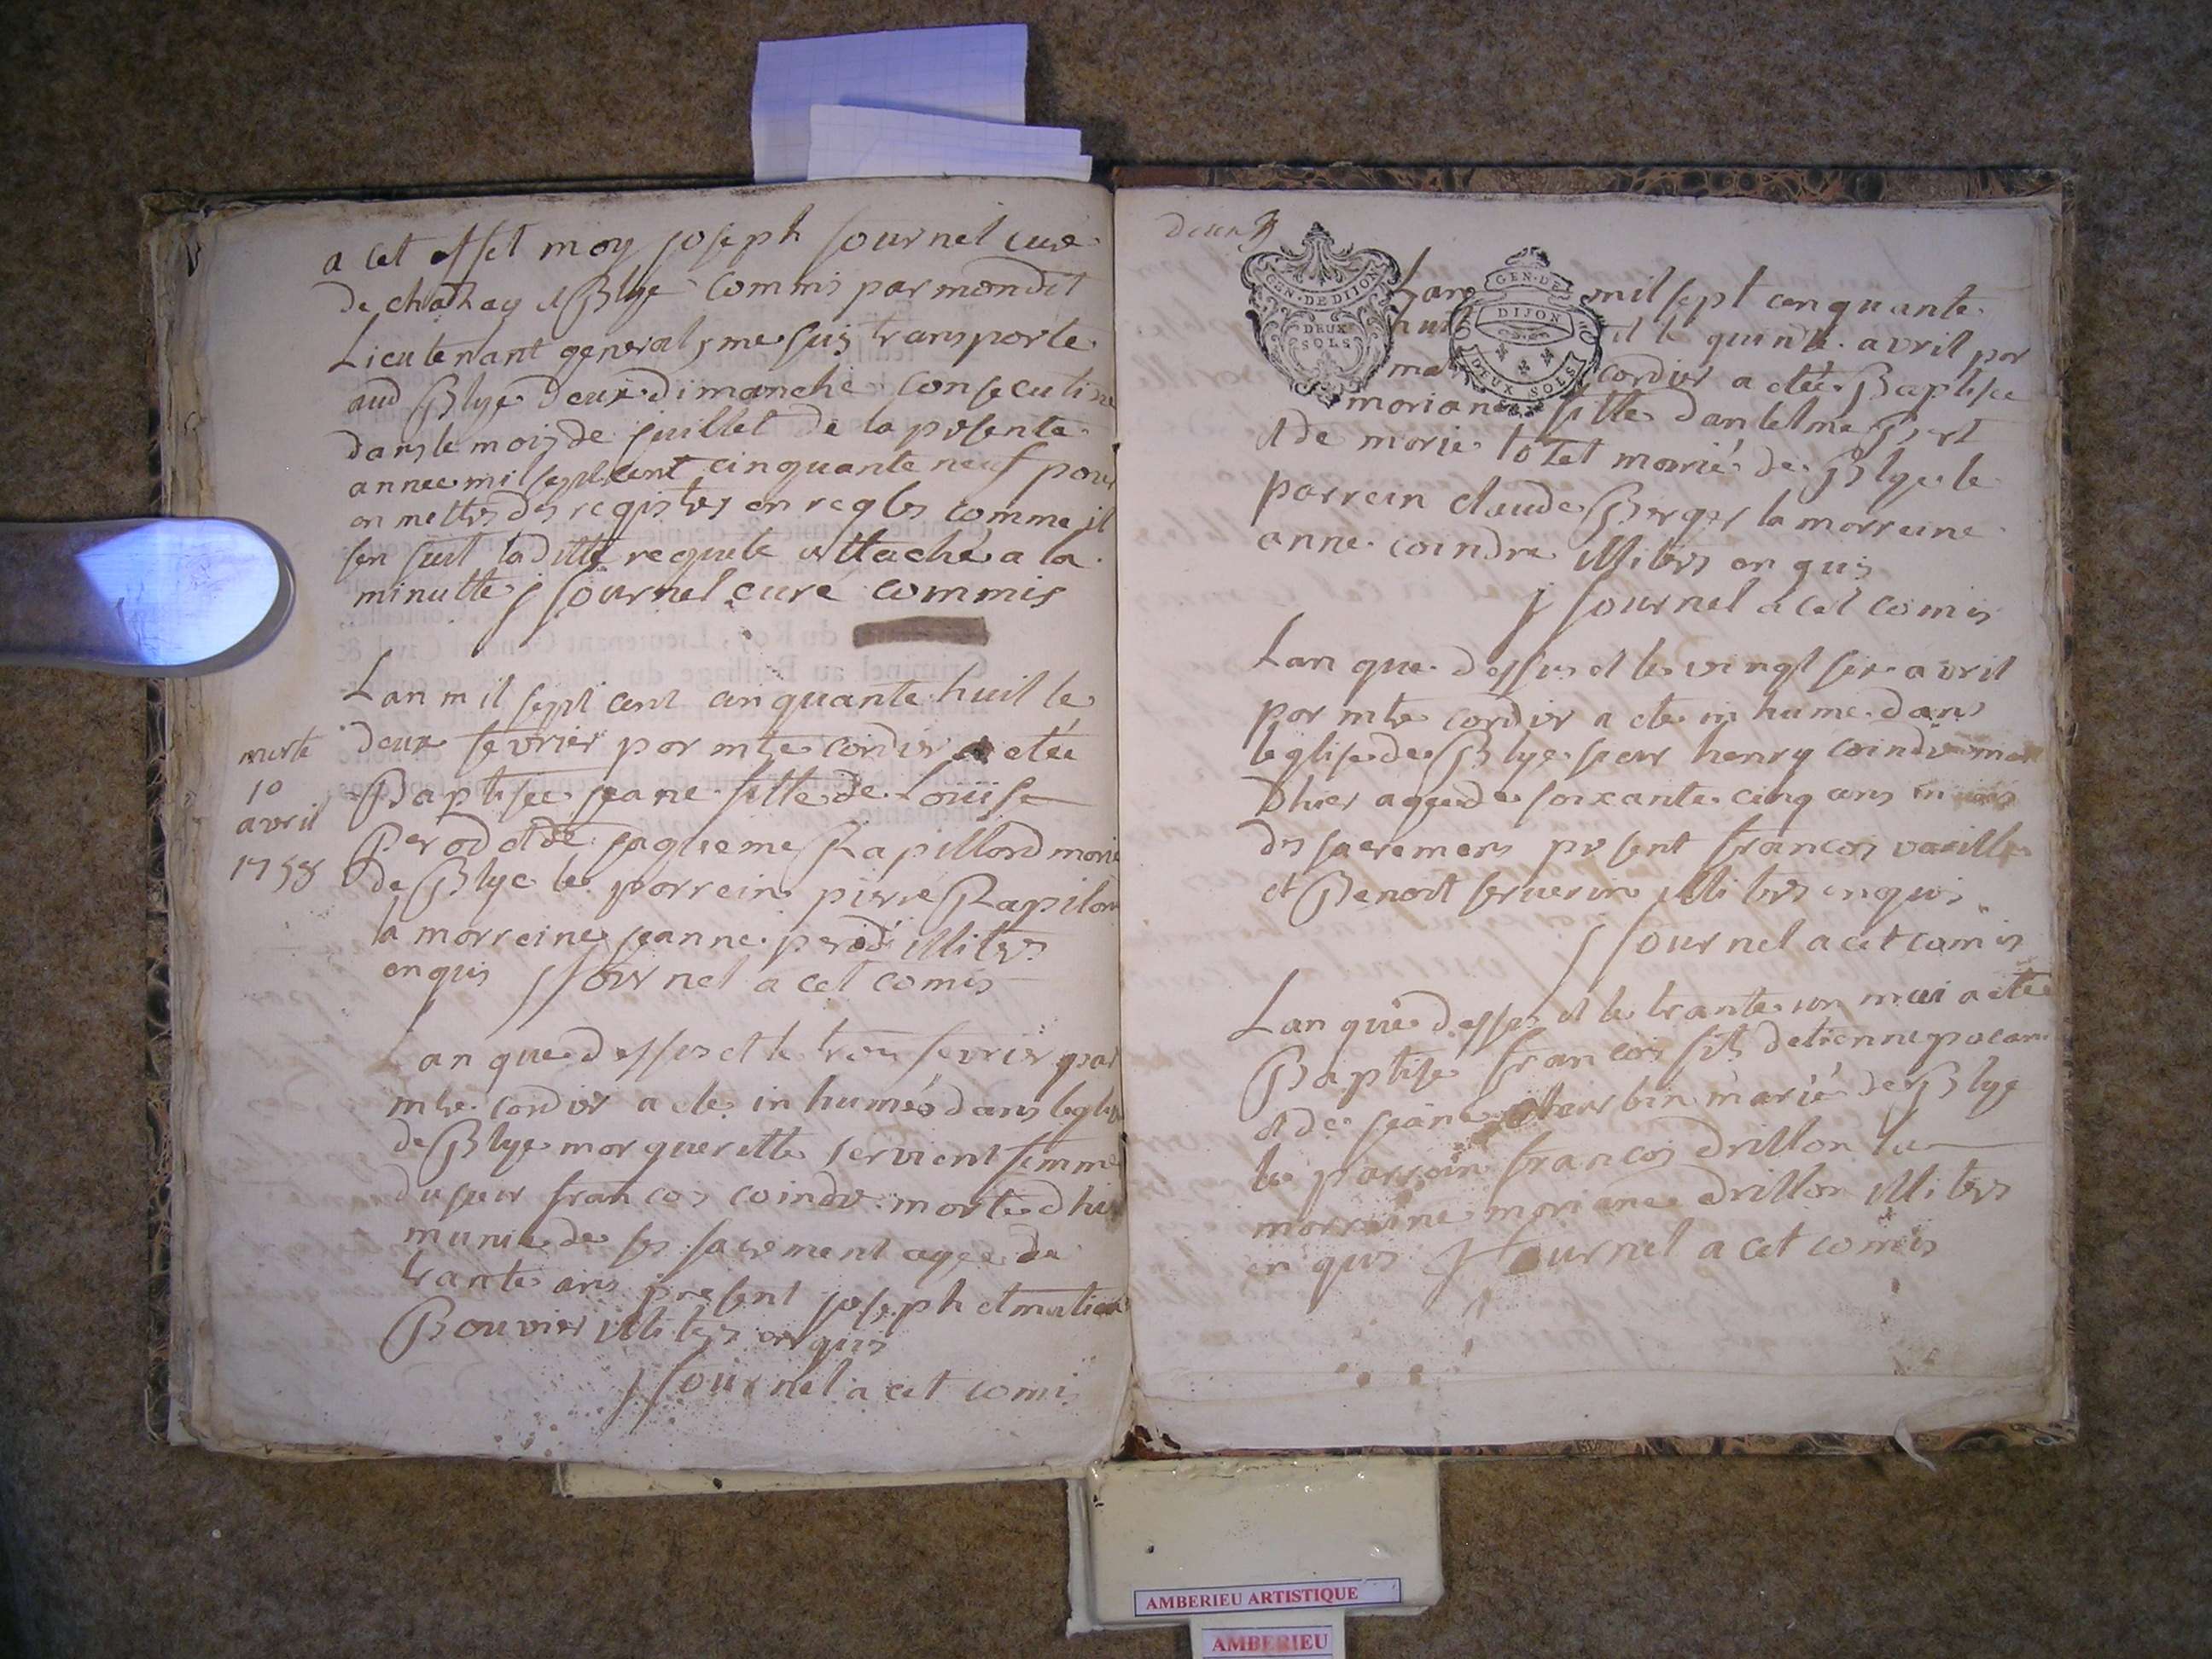 a cet effet moy joseph sournel curé
de chatzay et Blye commis par mondit
Lieutenant general, me suis transporte
aud Blye deux dimanche consecutive
dans le mois de juillet de la presente
annee mil sept cent cinquante neuf pour
en mettre des registres en regles comme il
sen suit laditte requete attaché a la
minutte J sournel curé commis
Lan mil sept cent cinquante huit le
deux fevrier par mtre cordier a etée
Baptisee jeane fille de Loüise
Perod et de jaqueme Rapillord marié
de Blye le parrein pierre Rapilon
la marreine jeanne perod illitres
enquis J Sournel a cet comis
morte
10
avril
1758
Lan que dessus et le trois fevrier par
mtre cordier a ete inhumés dans leglise
de Blye margueritte servient femme
du sieur francois coindre morte dhier
munie de ses sacrement agee de
trante ans present joseph et
Bouvier illitres enquis
J sournel a cet comis
deux
GEN. DE DIJON
DEUX
SOLS
GEN. DE
DIJON
DEUX SOLS
Lan mil sept cenquante
huit et le quinze avril par
cordier a etée Baptisee
mariane fille dantelme Bert
et de marie totet marié de Blye le
parrein claude Berger la marreine
anne coindre illitres enquis
J sournel a cet comis
Lan que dessus et le vingt six avril
par mtre cordier a ete inhume dans
leglise de Blye sieur henry coindre mort
Dhier agee de soixante cinq ans
des sacremens present francois vaville
et Benoit serverin illitres enquis
J sournel a cet comis
Lan que dessus et le trante un mai a etée
Baptise francois fils detienne
et de jeane bin marié de Blye
le parrein francois drillon la
marreine mariane drillon illitres
enquis J Sournel a cet comis
AMBERIEU ARTISTIQUE
AMBERIEU